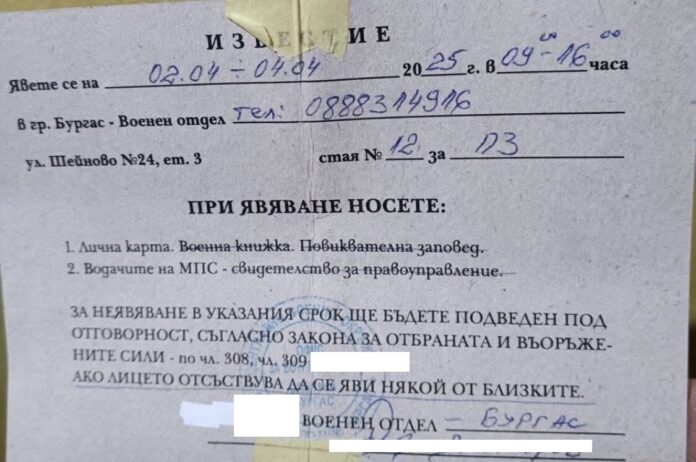 ИЗВЕСТИЕ
Явете се на 02.04 – 04.04 2025 г. в 09⁰⁰ – 16⁰⁰ часа
в гр. Бургас - Военен отдел тел: 0888314916
ул. Шейново №24, ет. 3 стая № 12 за ПЗ
ПРИ ЯВЯВАНЕ НОСЕТЕ:
1. Лична карта. Военна книжка. Повиквателна заповед.
2. Водачите на МПС - свидетелство за правоуправление.
ЗА НЕЯВЯВАНЕ В УКАЗАНИЯ СРОК ЩЕ БЪДЕТЕ ПОДВЕДЕН ПОД
ОТГОВОРНОСТ, СЪГЛАСНО ЗАКОНА ЗА ОТБРАНАТА И ВЪОРЪЖЕ-
НИТЕ СИЛИ - по чл. 308, чл. 309
АКО ЛИЦЕТО ОТСЪСТВУВА ДА СЕ ЯВИ НЯКОЙ ОТ БЛИЗКИТЕ.
ВОЕНЕН ОТДЕЛ – БУРГАС